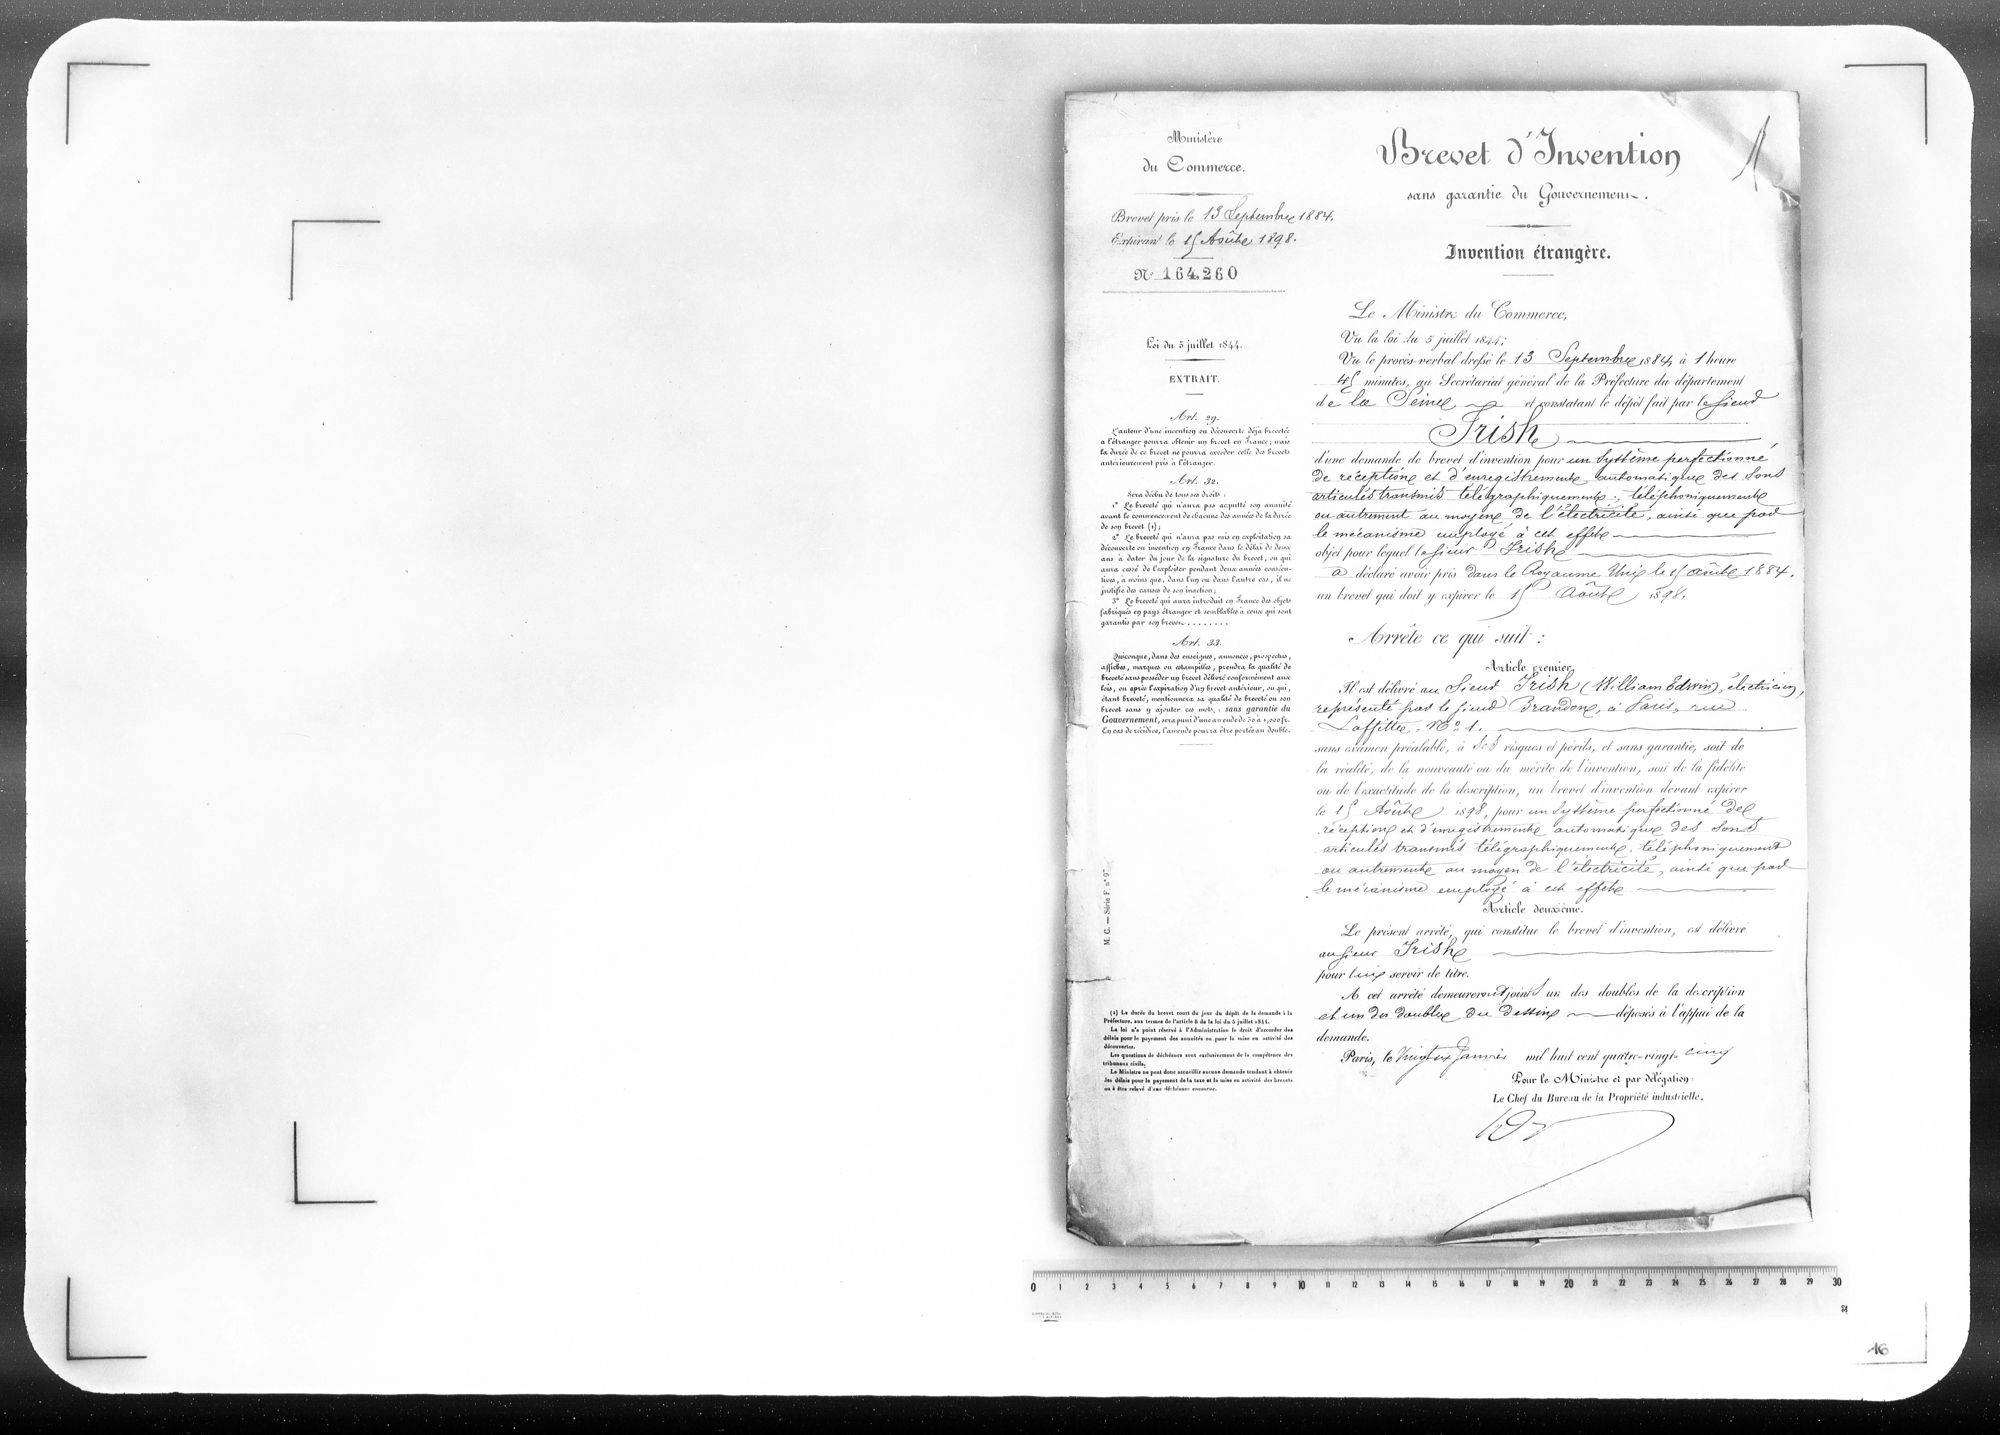 Ministère
du Commerce.
Brevet pris le 13 Septembre 1884.
Expirant le 15 Août 1898.
N° 164,260
Loi du 5 juillet 1844.
EXTRAIT.
Art. 29.
L'auteur d'une invention ou découverte déjà brevetée
à l'étranger pourra obtenir un brevet en France; mais
la durée de ce brevet ne pourra excéder celle des brevets
antérieurement pris à l'étranger.
Art. 32.
Sera déchu de tous ses droits :
1° Le breveté qui n'aura pas acquitté son annuité
avant le commencement de chacune des années de la durée
de son brevet (1);
2° Le breveté qui n'aura pas mis en exploitation sa
découverte ou invention en France dans le délai de deux
ans à dater du jour de la signature du brevet, ou qui
aura cessé de l'exploiter pendant deux années consécu-
tives, à moins que, dans l'un ou dans l'autre cas, il ne
justifie des causes de son inaction;
3° Le breveté qui aura introduit en France des objets
fabriqués en pays étranger et semblables à ceux qui sont
garantis par son brevet........
Art. 33.
Quiconque, dans des enseignes, annonces, prospectus,
affiches, marques ou estampilles, prendra la qualité de
breveté sans posséder un brevet délivré conformément aux
lois, ou après l'expiration d'un brevet antérieur, ou qui,
étant breveté, mentionnera sa qualité de breveté ou son
brevet sans y ajouter ces mots, sans garantie du
Gouvernement, sera puni d'une amende de 50 à 1,000 fr.
En cas de récidive, l'amende pourra être portée au double.
M. C. — Série F, n° 9.
(1) La durée du brevet court du jour du dépôt de la demande à la
Préfecture, aux termes de l'article 8 de la loi du 5 juillet 1844.
La loi n'a point réservé à l'Administration le droit d'accorder des
délais pour le payement des annuités ou pour la mise en activité des
découvertes.
Les questions de déchéances sont exclusivement de la compétence des
tribunaux civils.
Le Ministre ne peut donc accueillir aucune demande tendant à obtenir
des délais pour le payement de la taxe et la mise en activité des brevets
ou à être relevé d'une déchéance encourue.
Brevet d'Invention
sans garantie du Gouvernement.
Invention étrangère.
Le Ministre du Commerce,
Vu la loi du 5 juillet 1844;
Vu le procès-verbal dressé le 13 Septembre 1884, à 1 heure
45 minutes, au Secrétariat général de la Préfecture du département
de la Seine et constatant le dépôt fait par le Sieur
Irish
d'une demande de brevet d'invention pour un Système perfectionné
de réception et d'enregistrement automatique des Sons
articulés transmis télégraphiquement, téléphoniquement
ou autrement au moyen de l'électricité, ainsi que pour
le mécanisme employé à cet effet
objet pour lequel le Sieur Irish
a déclaré avoir pris dans le Royaume Uni le 15 août 1884,
un brevet qui doit y expirer le 15 Août 1898.
Arrête ce qui suit :
Article premier.
Il est délivré au Sieur Irish (William Edwin), électricien,
représenté par le Sieur Brandon, à Paris, rue
Laffitte, N° 1.
sans examen préalable, à ses risques et périls, et sans garantie, soit de
la réalité, de la nouveauté ou du mérite de l'invention, soit de la fidélité
ou de l'exactitude de la description, un brevet d'invention devant expirer
le 15 Août 1898, pour un Système perfectionné de
réception et d'enregistrement automatique des Sons
articulés transmis télégraphiquement, téléphoniquement
ou autrement au moyen de l'électricité, ainsi que pour
le mécanisme employé à cet effet
Article deuxième.
Le présent arrêté, qui constitue le brevet d'invention, est délivré
au Sieur Irish
pour lui servir de titre.
A cet arrêté demeureront joints un des doubles de la description
et un des doubles du dessin déposés à l'appui de la
demande.
Paris, le Vingt six Janvier mil huit cent quatre-vingt-cinq
Pour le Ministre et par délégation :
Le Chef du Bureau de la Propriété industrielle.
0 1 2 3 4 5 6 7 8 9 10 11 12 13 14 15 16 17 18 19 20 21 22 23 24 25 26 27 28 29 30
16